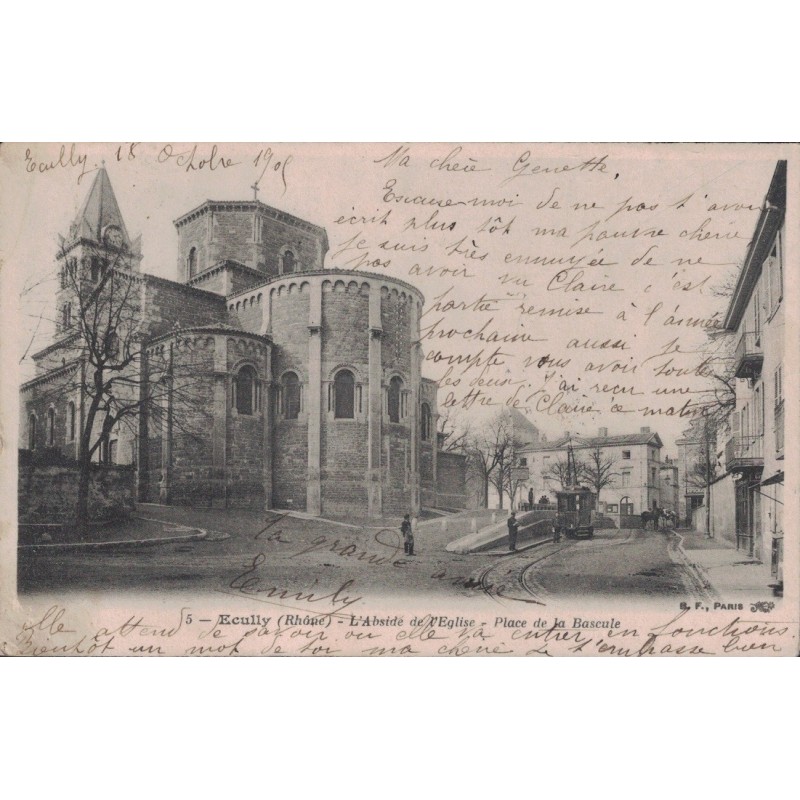 Ecully 18 Octobre 1905
Ma chère Genette,
Excuse-moi de ne pas t'avoir
écrit plus tôt ma pauvre chérie
je suis très ennuyée de ne
pas avoir vu Claire c'est
partie remise à l'année
prochaine aussi je
compte vous avoir toute
les deux. J'ai reçu une
lettre de Claire ce matin
Ta grande amie
Emily
5 - Ecully (Rhône) - L'Abside de l'Eglise - Place de la Bascule
B. F., PARIS
elle attend de savoir ou elle va entrer en fonctions.
Bientôt un mot de toi ma chérie Je t'embrasse bien